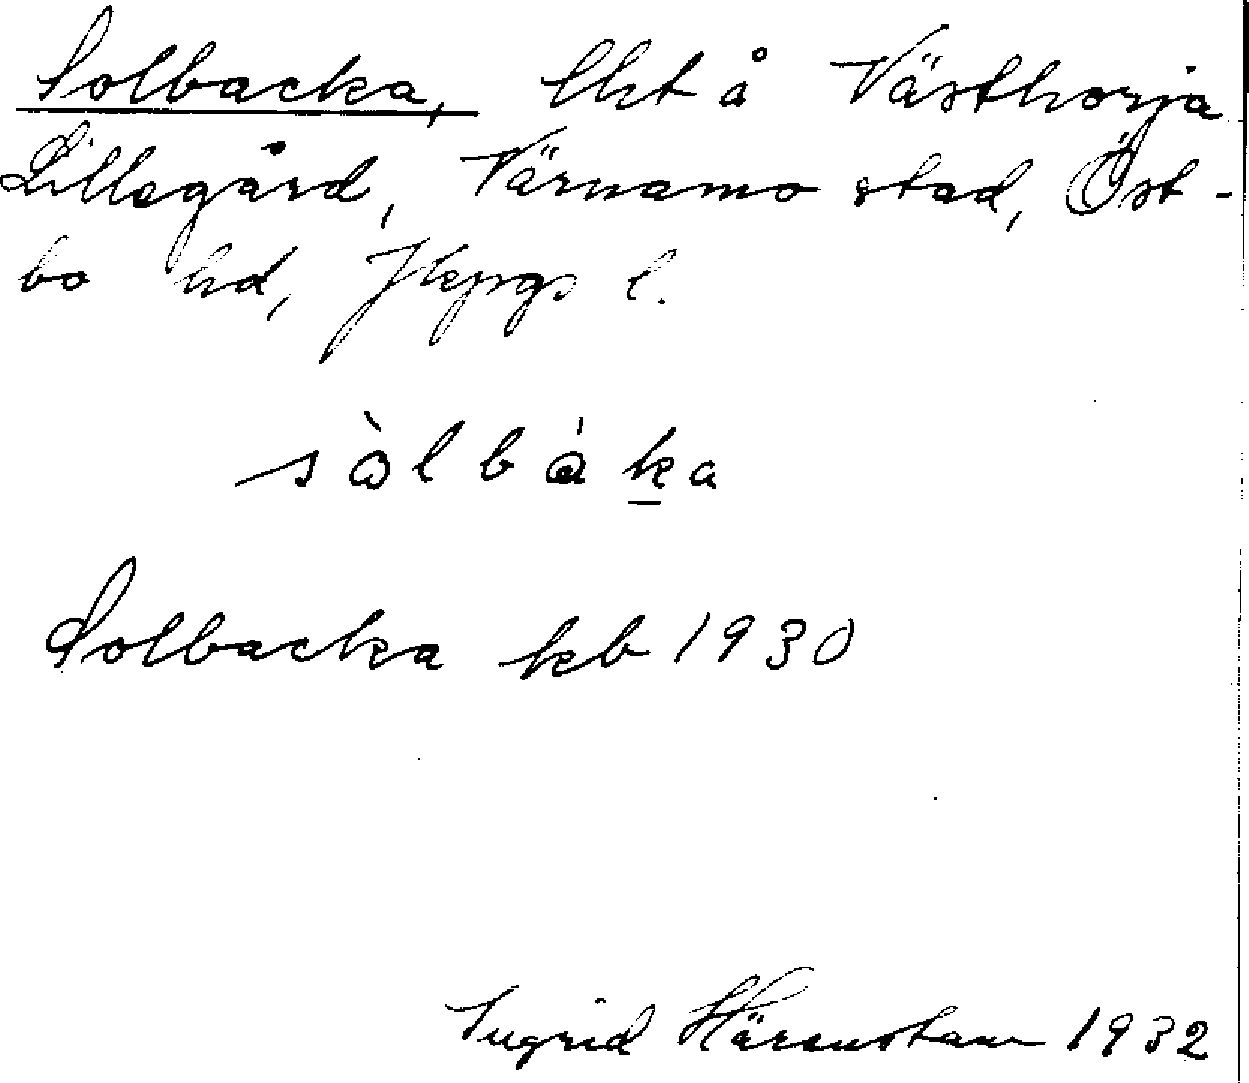 Solbacka, lht å Västhorja
Lillegård, Värnamo stad, Öst-
bo hd, Jkpgs l.
sòlbáka
Solbacka kb 1930
Ingrid Härenstam 1932